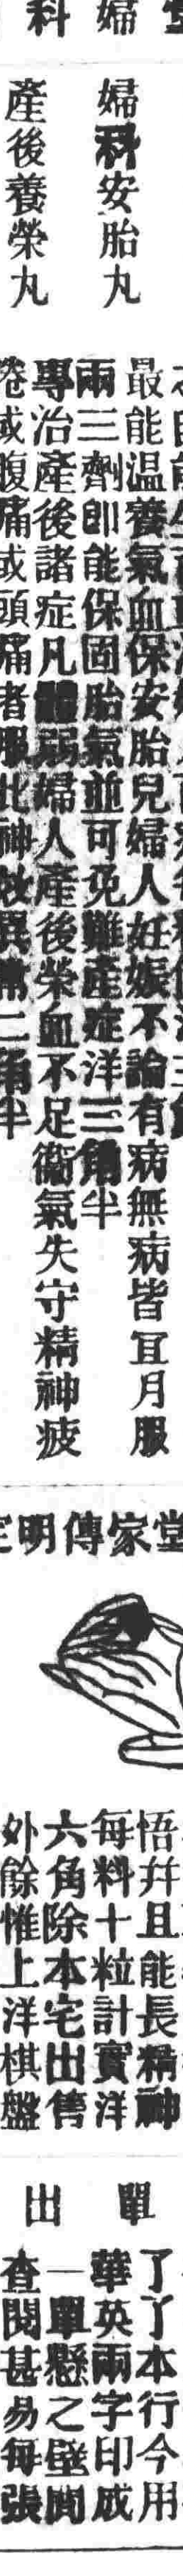 婦科
婦科安胎丸
最能温養氣血保安胎兒婦人妊娠不論有病無病皆宜月服
兩三劑卽能保固胎氣並可免難產症洋三角半
產後養榮丸
專治產後諸症凡體弱婦人產後榮血不足衛氣失守精神疲
倦或腹痛或頭痛者服此神效異常二角半
堂家傳明
悟幷且能長精神
每料十粒計實洋
六角除本宅出售
外餘惟上洋棋盤
單
出
了丫本行今用
華英兩字印成
一單懸之壁間
查閱甚易每張